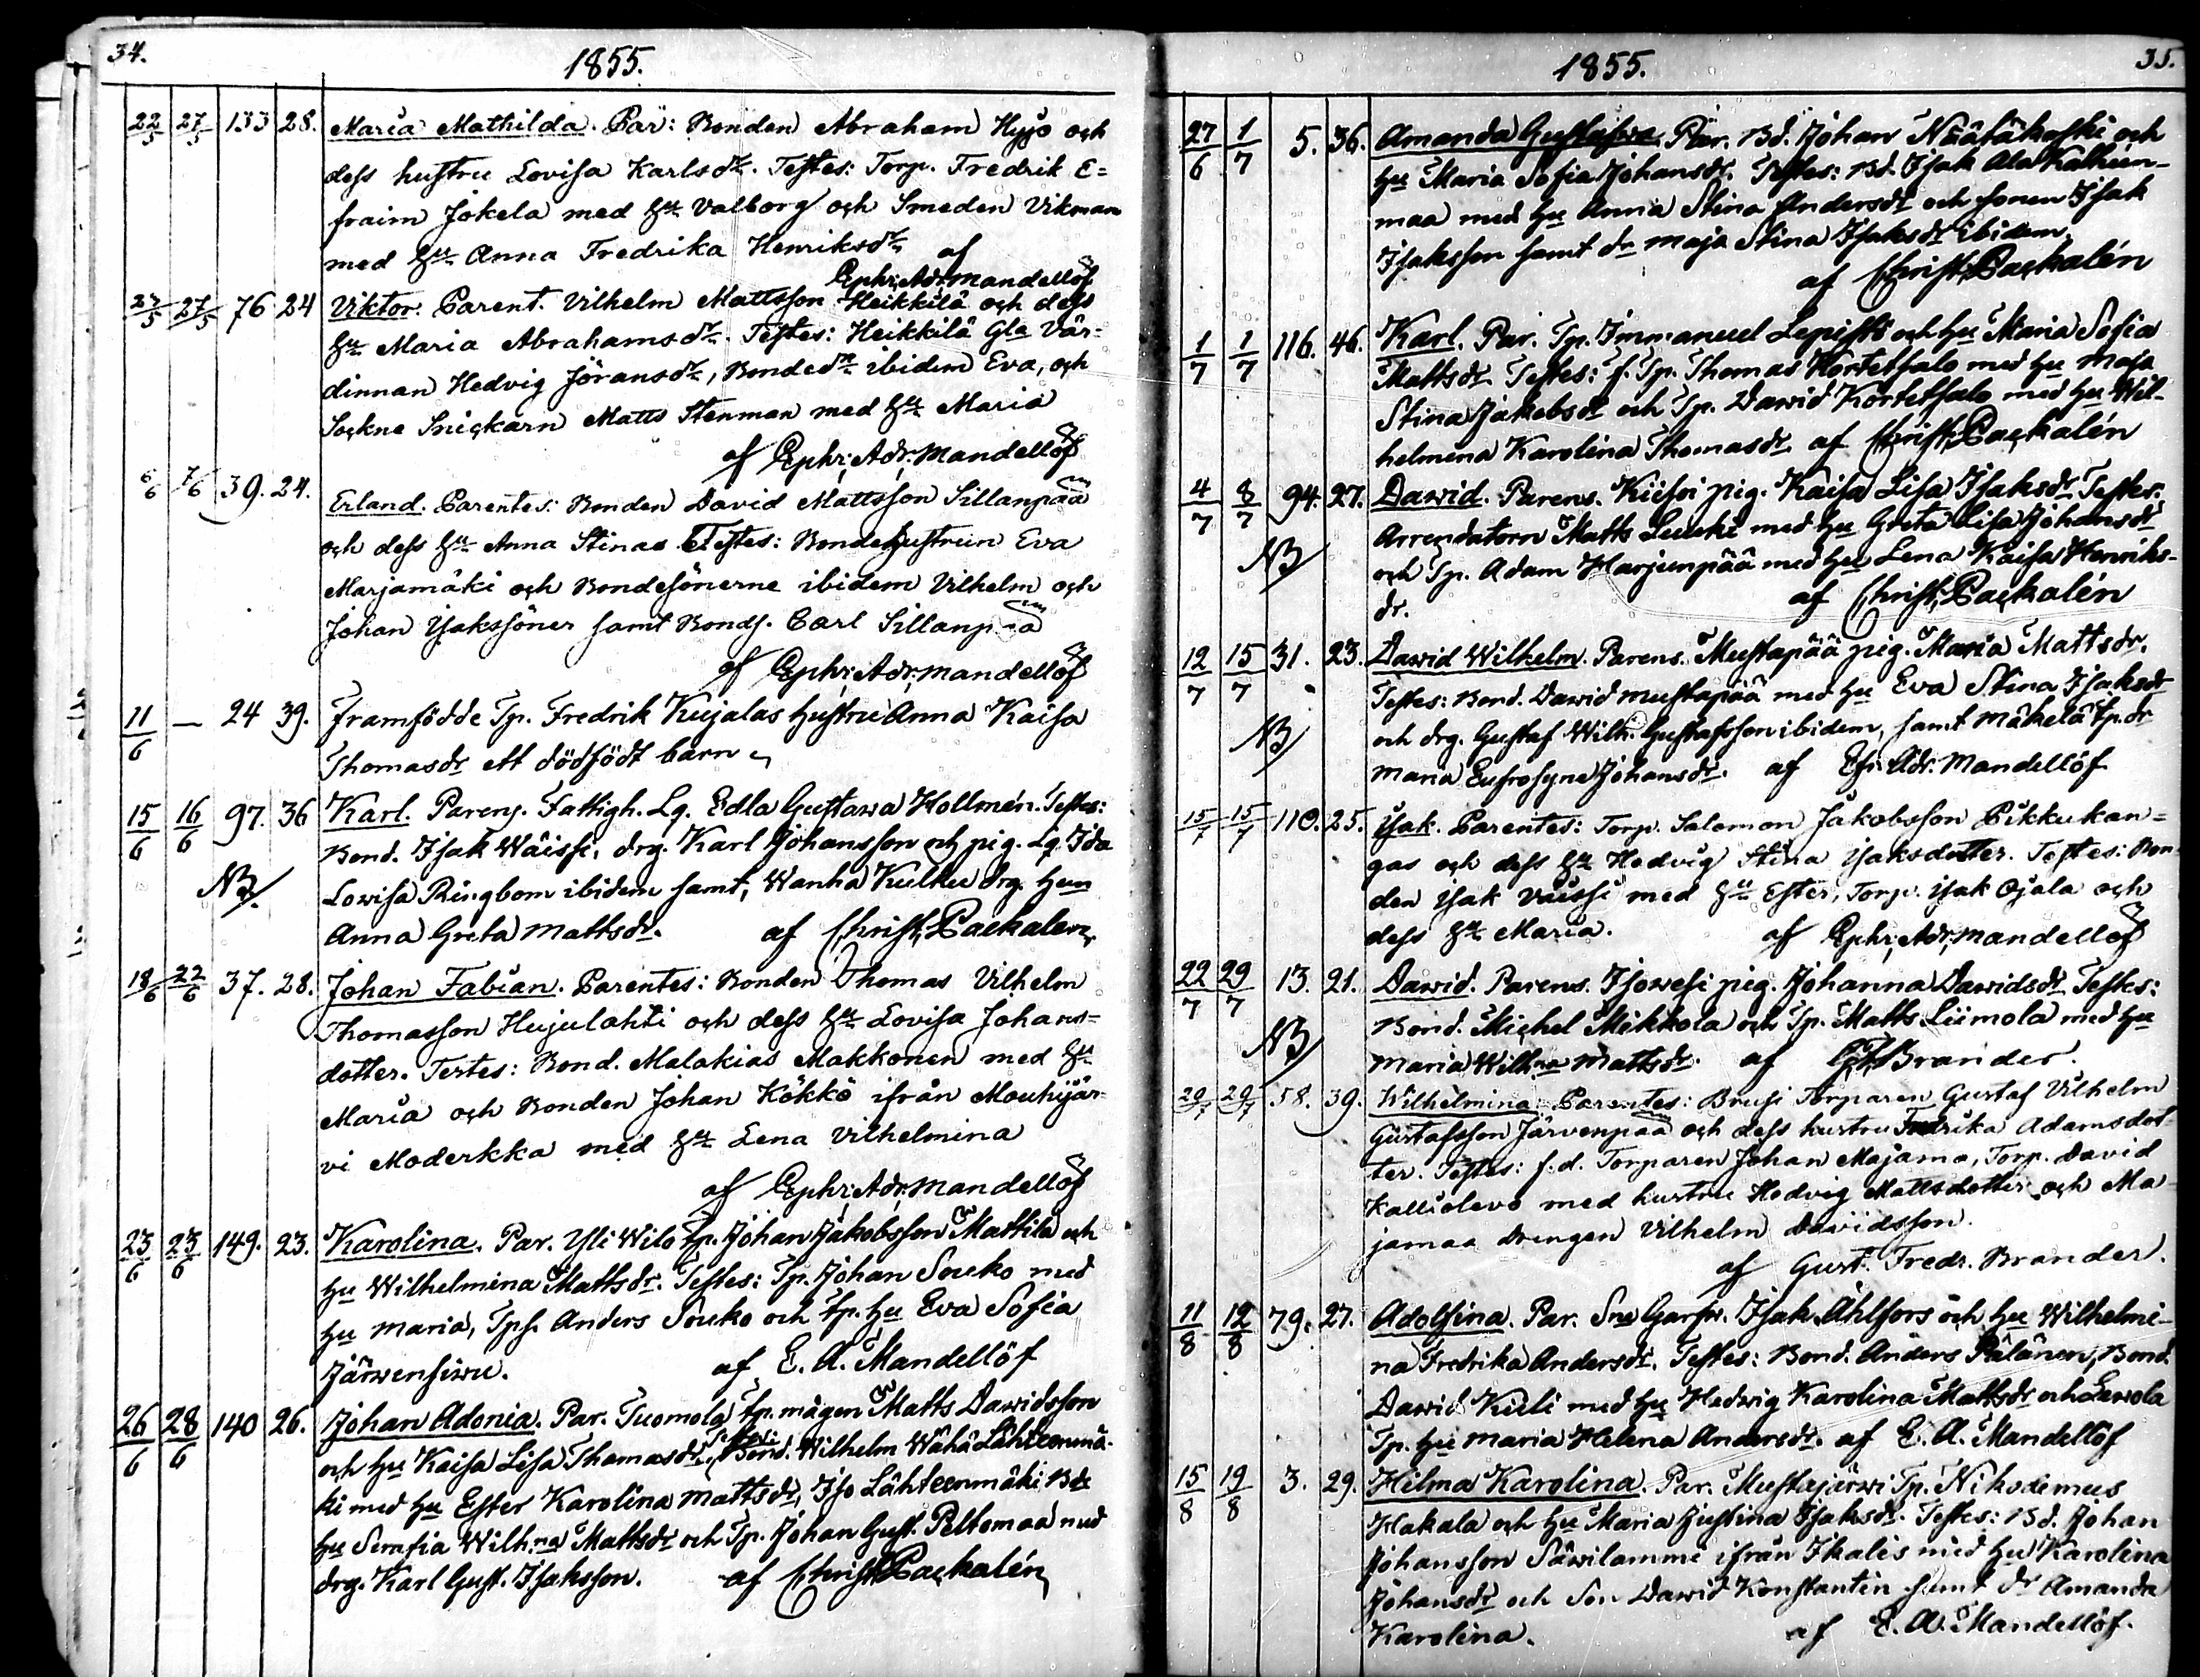 34.
1855.
22/5 27/5 133 28. Maria Mathilda. Par: Bonden Abraham Hyjö och
dess hustru Lovisa Karlsdr. Testes: Torp. Fredrik E=
fraim Jokela med hu Valborg och Smeden Vikman
med hu Anna Fredrika Henriksdr
af
Ephr: Adr: Mandellöf
27/5 76 24 Viktor. Parent. Vilhelm Mattsson Heikkilä och dess
hu Maria Abrahamsdr. Testes: Heikkilä Gla Vär-
dinnan Hedvig Jöransdr, Bondedr ibidem Eva, och
Sockne Snickarn Matts Stenman med hu Maria
af Ephr: Adr: Mandellöf
6/6 7/6 39. 24. Erland. Parentes: Bonden David Mattsson Sillanpää
och dess hu Anna Stina Testes: Bondehustrun Eva
Marjamäki och Bondesönerne ibidem Vilhelm och
Johan Isakssöner samt Bonds. Carl Sillanpää
af Ephr: Adr: Mandellöf
11/6 — 24 39. Framfödde Tp. Fredrik Kujalas hustru Anna Kaisa
Thomasdr ett dödfödt barn
15/6 16/6 97. 36 Karl. Parens. Fattigh. Lg. Edla Gustawa Hollmén. Testes:
Bond. Isak Wäissi, drg. Karl Johansson och pig. Lg. Ida
NB. Lowisa Ringbom ibidem samt, Wanha Kulku drg. hun
Anna Greta Mattsdr. af Christ. Packalén
18/6 22/6 37. 28. Johan Fabian. Parentes: Bonden Thomas Vilhelm
Thomasson Hujulahti och dess hu Lovisa Johans=
dotter. Testes: Bond. Malakias Makkonen med hu
Maria och Bonden Johan Kökkö ifrån Mouhijär-
vi Moderkka med hu Lena Vilhelmina
af Ephr: Adr: Mandellöf
23/6 23/6 149. 23. Karolina. Par. Yli Wilo tp. Johan Jakobsson Mattila och
hu Wilhelmina Mattsdr. Testes: Tp. Johan Souko med
hu Maria, Tps. Anders Souko och tp. hu Eva Sofia
Järwensiwu. af E. A. Mandellöf
26/6 28/6 140 26. Johan Adonia. Par. Tuomola tp. mågen Matts Dawidsson
och hu Kaisa Lisa Thomasdr. Testes: Bond. Wilhelm Wähä Lähteenmä-
ki med hu Ester Karolina Mattsdr, Iso Lähteenmäki Bde
hu Serafia Wilh:na Mattsdr och Tp. Johan Gust. Peltomaa med
drg. Karl Gust. Isaksson. af Christ. Packalén
1855.
35.
27/6 1/7 5. 36. Amanda Gustafwa. Par. Bd. Johan Näätäkoski och
hu Maria Sofia Johansdr. Testes: Bd. Isak Ala Kalhun-
maa med hu Anna Stina Andersdr och sonen Isak
Isaksson samt dr Maja Stina Isaksdr ibidem.
af Christ. Packalén
1/7 1/7 116. 46. Karl. Par. Tp. Immanuel Lepistö och hu Maria Sofia
Mattsdr. Testes: f. Tp. Thomas Kortetsalo med hu Maja
Stina Jakobsdr och Tp. Dawid Kortetsalo med hu Wil-
helmina Karolina Thomasdr. af Christ. Packalén
4/7 8/7 94. 27. Dawid. Parens. pig. Kaisa Lisa Isaksdr. Testes:
Arrendatorn Matts med hu Greta Lisa Johansdr
NB och Tp. Adam Harjunpää med hu Lena Kaisa Henriks-
dr. af Christ. Packalén
12/7 15/7 31. 23. Dawid Wilhelm. Parens. Mustapää pig. Maria Mattsdr.
Testes: Bond. Dawid Mustapää med hu Eva Stina Isaksdr
NB och drg. Gustaf Wilh. Gustafsson ibidem, samt Mäkelä tp. dr
Maria Eufrosyne Johansdr. af Efr. Adr. Mandellöf
15/7 15/7 110. 25. Isak. Parentes: Torp. Salomon Jakobsson Pikkukan=
gas och dess hu Hedvig Stina Isaksdotter. Testes: Bon-
den Isak Väissi med hu Ester, Torp. Isak Ojala och
dess hu Maria. af Ephr: Adr: Mandellöf
22/7 29/7 13. 21. Dawid. Parens. Isowesi pig. Johanna Dawidsdr. Testes:
Bond. Michel Mikkola och Tp. Matts Liimola med hu
NB Maria Wilh:na Mattsdr. af Brander.
29/7 29/7 58. 39. Wilhelmina. Parentes: Brusi Torparen Gustaf Vilhelm
Gustafsson Järvenpää och dess hustru Fredrika Adamsdot-
ter. Testes: f.d. Torparen Johan Majama, Torp. David
Kalliolevo med hustru Hedvig Mattsdotter och Ma-
jamaa Drengen Vilhelm Davidsson.
af Gust. Fredr. Brander.
11/8 12/8 79. 27. Adolfina. Par. Sne Garfw. Isak Ahlfors och hu Wilhelmi-
na Fredrika Andersdr. Testes: Bond. Anders Pälänen, Bond.
Dawid Kuli med hu Hedwig Karolina Mattsdr och Lewola
Tp. hu Maria Helena Andersdr. af E. A. Mandellöf
15/8 19/8 3. 29. Hilma Karolina. Par. Mustajärwi Tp. Nikodemus
Hakala och hu Maria Justina Isaksdr. Testes: Bd. Johan
Johansson Säwilammi ifrån Ikalis med hu Karolina
Johansdr och Son Dawid Konstantin samt dr Amanda
Karolina. af E. A. Mandellöf.